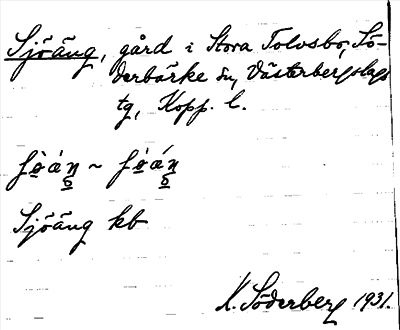 Sjöäng, gård i Stora Tolvsbo, Sö-
derbärke sn, Västerbergslags
tg, Kopp. l.
Sjöäng kb
K. Söderberg 1931.